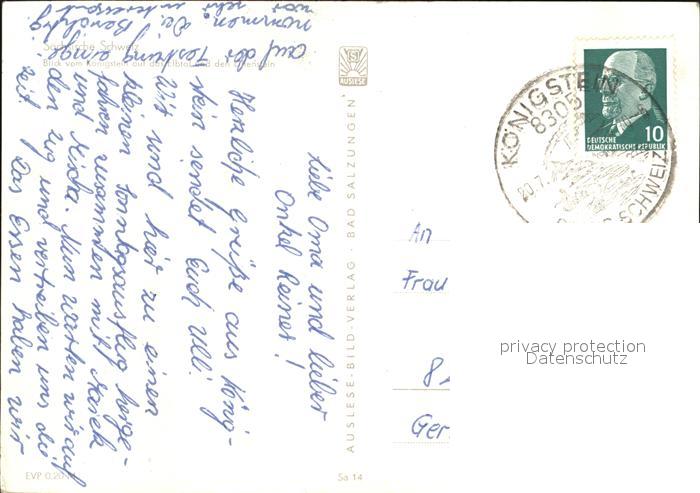 Liebe Oma und lieber
Onkel Reiner!
Herzliche Grüße aus König-
stein sendet Euch Ulli.
Wir sind hier zu einen
kleinen Sonntagsausflug herge-
fahren zusammen mit
und Mischa. Nun warten wir auf
den Zug und vertreiben uns die
Zeit. Das Essen haben wir
auf der Festung einge-
nommen. Die Besichtig.
war sehr interessant
Sächsische Schweiz
Blick vom Königstein auf das Elbtal und den Lilienstein
AUSLESE
AUSLESE-BILD-VERLAG · BAD SALZUNGEN
EVP 0,20
Sa 14
KÖNIGSTEIN
8305
20.7.
SCHWEIZ
10
DEUTSCHE
DEMOKRATISCHE REPUBLIK
An
Frau
8
Ger
privacy protection
Datenschutz